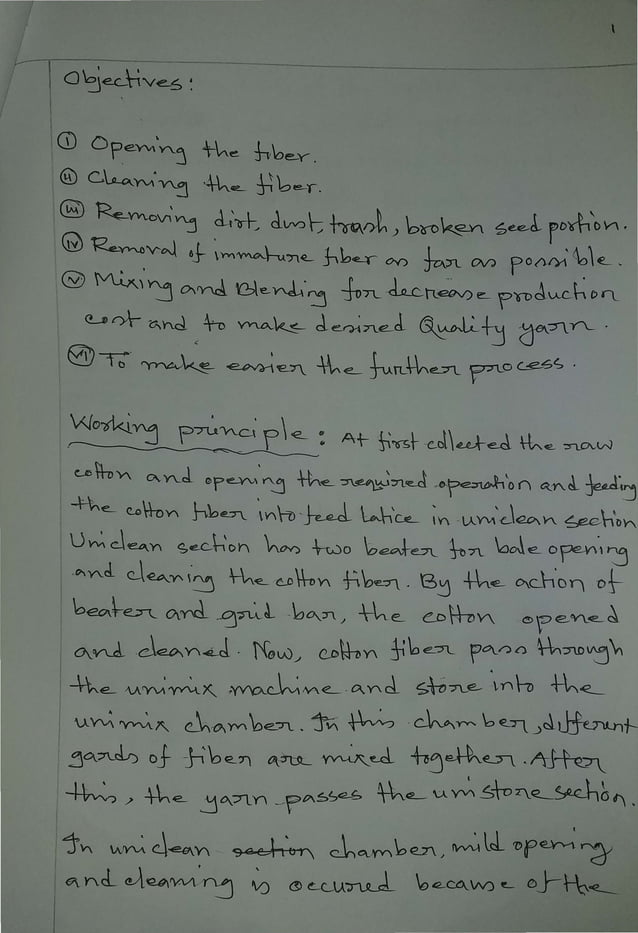 1
Objectives:
(i) Opening the fiber.
(ii) Cleaning the fiber.
(iii) Removing dirt, dust, trash, broken seed portion.
(iv) Removal of immature fiber as far as possible.
(v) Mixing and Blending for decrease production
cost and to make desired Quality yarn.
(vi) To make easier the further process.
Working principle: At first collected the raw
cotton and opening the required operation and feeding
the cotton fiber into feed Latice in uniclean section
Uniclean section has two beater for bale opening
and cleaning the cotton fiber. By the action of
beater and grid bar, the cotton opened
and cleaned. Now, cotton fiber pass through
the unimix machine and store into the
unimix chamber. In this chamber, different
gards of fiber are mixed together. After
this, the yarn passes the unistore section.
In uniclean section chamber, mild opening
and cleaning is occured because of the